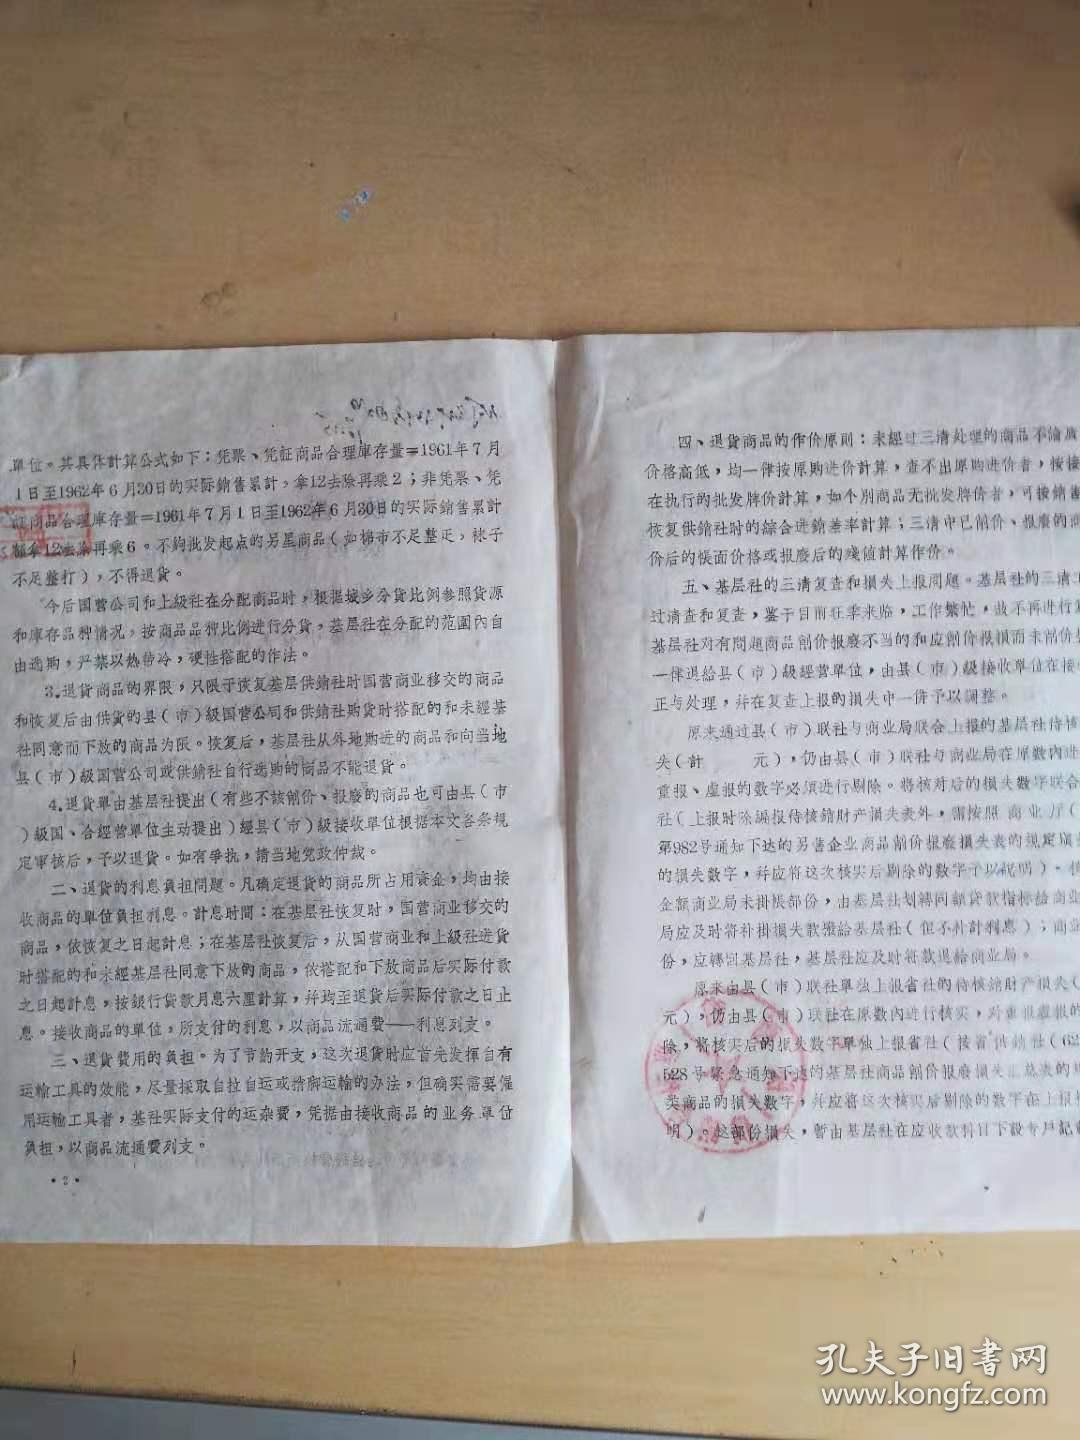 單位。其具体計算公式如下：凭票、凭証商品合理庫存量＝1961年7月
1日至1962年6月30日的实际銷售累計，拿12去除再乘2；非凭票、凭
証商品合理庫存量＝1961年7月1日至1962年6月30日的实际銷售累計
額拿12去除再乘6。不夠批发起点的另星商品（如棉布不足整疋，袜子
不足整打），不得退貨。
今后国营公司和上級社在分配商品时，根据城乡分貨比例参照貨源
和庫存品种情况，按商品品种比例进行分貨，基层社在分配的范围內自
由选购，严禁以热帶冷，硬性搭配的作法。
3.退貨商品的界限，只限于恢复基层供銷社时国营商业移交的商品
和恢复后由供貨的县（市）級国营公司和供銷社购貨时搭配的和未經基
社同意而下放的商品为限。恢复后，基层社从外地购进的商品和向当地
县（市）級国营公司或供銷社自行选购的商品不能退貨。
4.退貨單由基层社提出（有些不該削价、报廢的商品也可由县（市
）級国、合經营單位主动提出）經县（市）級接收單位根据本文各条規
定审核后，予以退貨。如有爭执，請当地党政仲裁。
二、退貨的利息負担問題。凡确定退貨的商品所占用資金，均由接
收商品的單位負担利息。計息时間：在基层社恢复时，国营商业移交的
商品，依恢复之日起計息；在基层社恢复后，从国营商业和上級社进貨
时搭配的和未經基层社同意下放的商品，依搭配和下放商品后实际付款
之日起計息，按銀行貸款月息六厘計算，幷均至退貨后实际付款之日止
息。接收商品的單位，所支付的利息，以商品流通費——利息列支。
三、退貨費用的負担。为了节約开支，这次退貨时应首先发揮自有
运輸工具的效能，尽量採取自拉自运或捎脚运輸的办法，但确实需要僱
用运輸工具者，基社实际支付的运杂費，凭据由接收商品的业务單位
負担，以商品流通費列支。
·2·
四、退貨商品的作价原則：未經过三清处理的商品不論
价格高低，均一律按原购进价計算，查不出原购进价者，按接
在执行的批发牌价計算，如个別商品无批发牌价者，可按銷
恢复供銷社时的綜合进銷差率計算；三清中已削价、报廢的商
份后的帐面价格或报廢后的殘値計算作价。
五、基层社的三清复查和損失上报問題。基层社的三清
过清查和复查，鉴于目前旺季来临，工作繁忙，故不再进行
基层社对有問題商品削价报廢不当的和应削价报損而未削价
一律退給县（市）級經营單位，由县（市）級接收單位在接
正与处理，幷在复查上报的損失中一倂予以調整。
原来通过县（市）联社与商业局联合上报的基层社待核
失（計　　元），仍由县（市）联社与商业局在原数內进
重报、虛报的数字必须进行剔除。将核对后的損失数字联合
社（上报时除編报待核銷財产損失表外，需按照商业厅（
第982号通知下达的另售企业商品削价报廢損失表的規定
的損失数字，幷应将这次核实后剔除的数字予以說明）。
金額商业局未掛帐部份，由基层社划轉同額貸款指标給商业
局应及时将补掛損失款撥給基层社（但不补計利息）；商业
份，应轉回基层社，基层社应及时将款退給商业局。
原来由县（市）联社單独上报省社的待核銷財产損失（
元），仍由县（市）联社在原数內进行核实，对重报虛报的
除，将核实后的損失数字單独上报省社（按省供銷社（62
528号紧急通知下达的基层社商品削价报廢損失汇总表的
类商品的損失数字，幷应将这次核实后剔除的数字在上报
明）。这部份損失，暫由基层社在应收款科目下設专戶記
孔夫子旧書网
www.kongfz.com